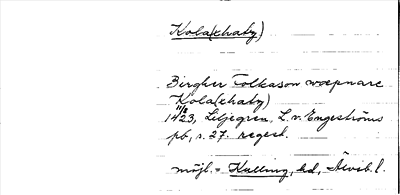 Kola(khaty)
Birgher Folkason wæpnare
Kola(khaty)
11/2
1423, Liljegren, L. v. Engeströms
pb, s. 27. regest.
möjl. = Kulling, hd,